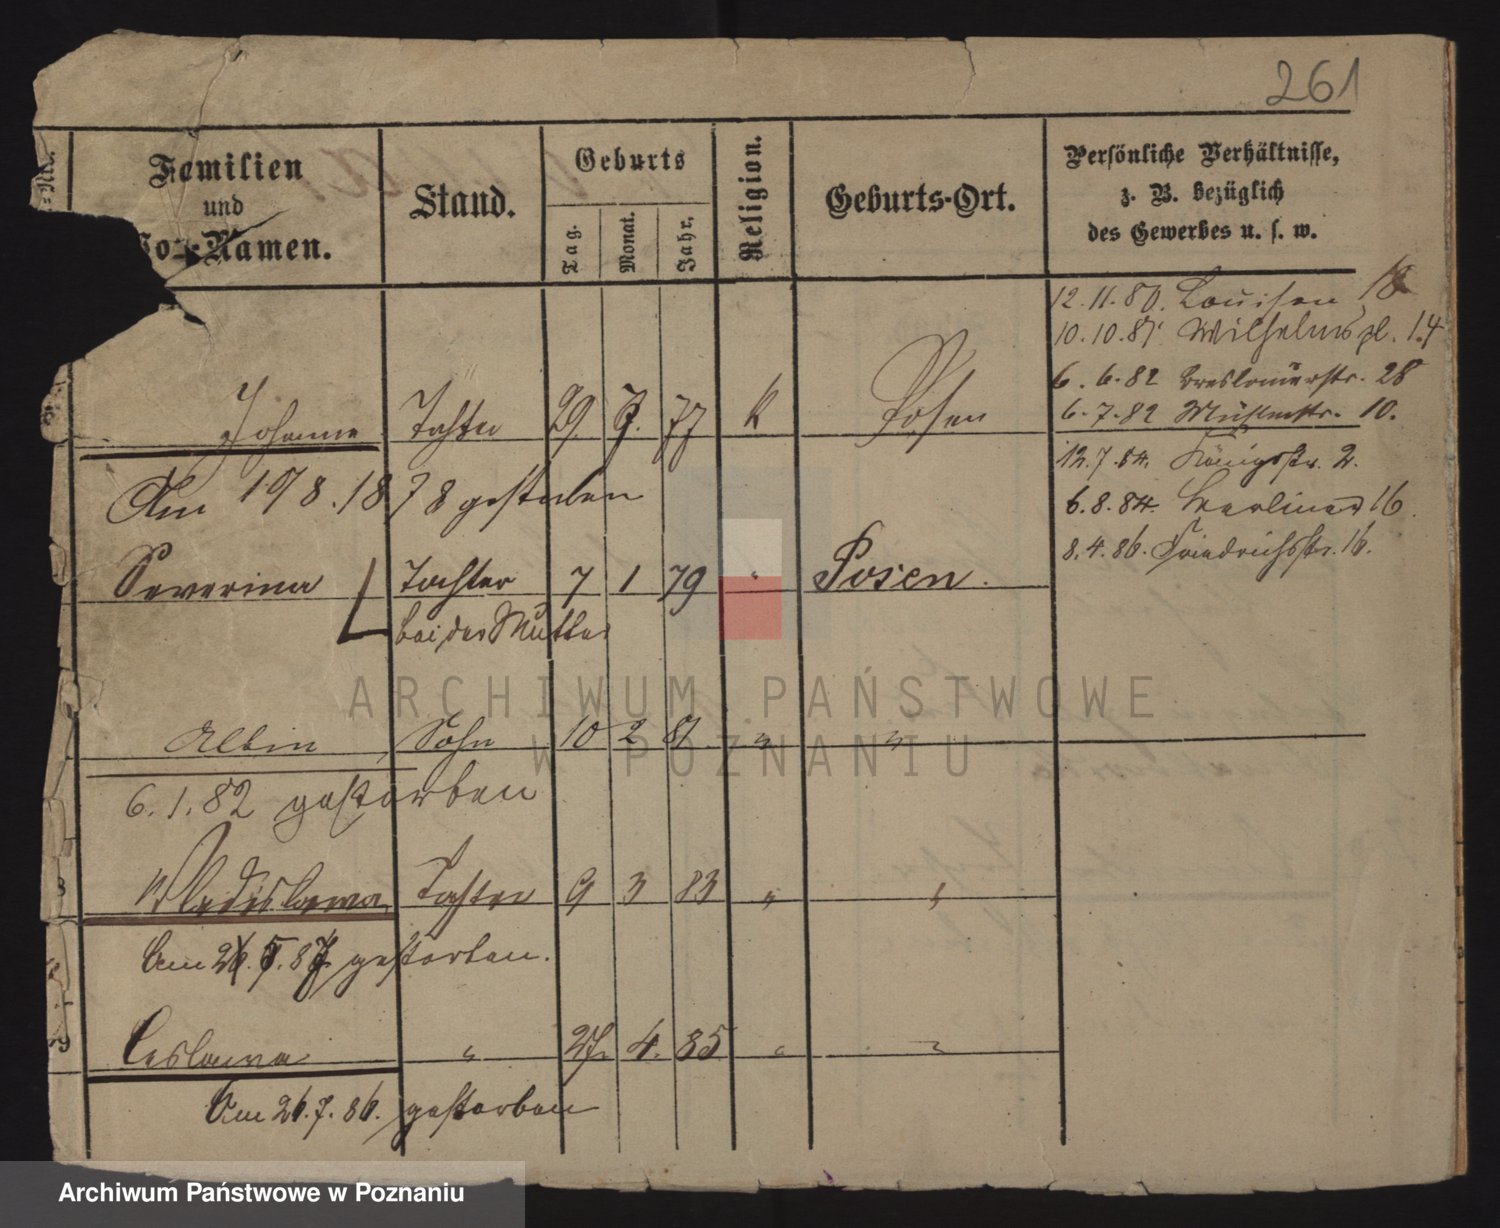 261
Familien
und
Vor-Namen.
Stand.
Geburts
Tag.
Monat.
Jahr.
Religion.
Geburts-Ort.
Persönliche Verhältnisse,
z. B. bezüglich
des Gewerbes u. s. w.
12.11.80. Louisen 18
10.10.81 Wilhelmspl. 14
6. 6.82 Breslauerstr. 28
6.7.82 Mühlenstr. 10.
Johanna Tochter 29. 7. 77 k Posen
12.7.84. Königsstr. 2.
Am 19 8.1878 gestorben
6.8.84. Berliner 16
8.4.86. Friedrichsstr. 16.
Severina Tochter 7 1 79 " Posen.
bei der Mutter
Albin Sohn 10 2 81 " "
6.1.82 gestorben
Wladislawa Tochter 9 3 83 " "
Am gestorben.
Ceslawa " 27. 4. 85 " "
Am 26.7.86. gestorben
ARCHIWUM PAŃSTWOWE
W POZNANIU
Archiwum Państwowe w Poznaniu